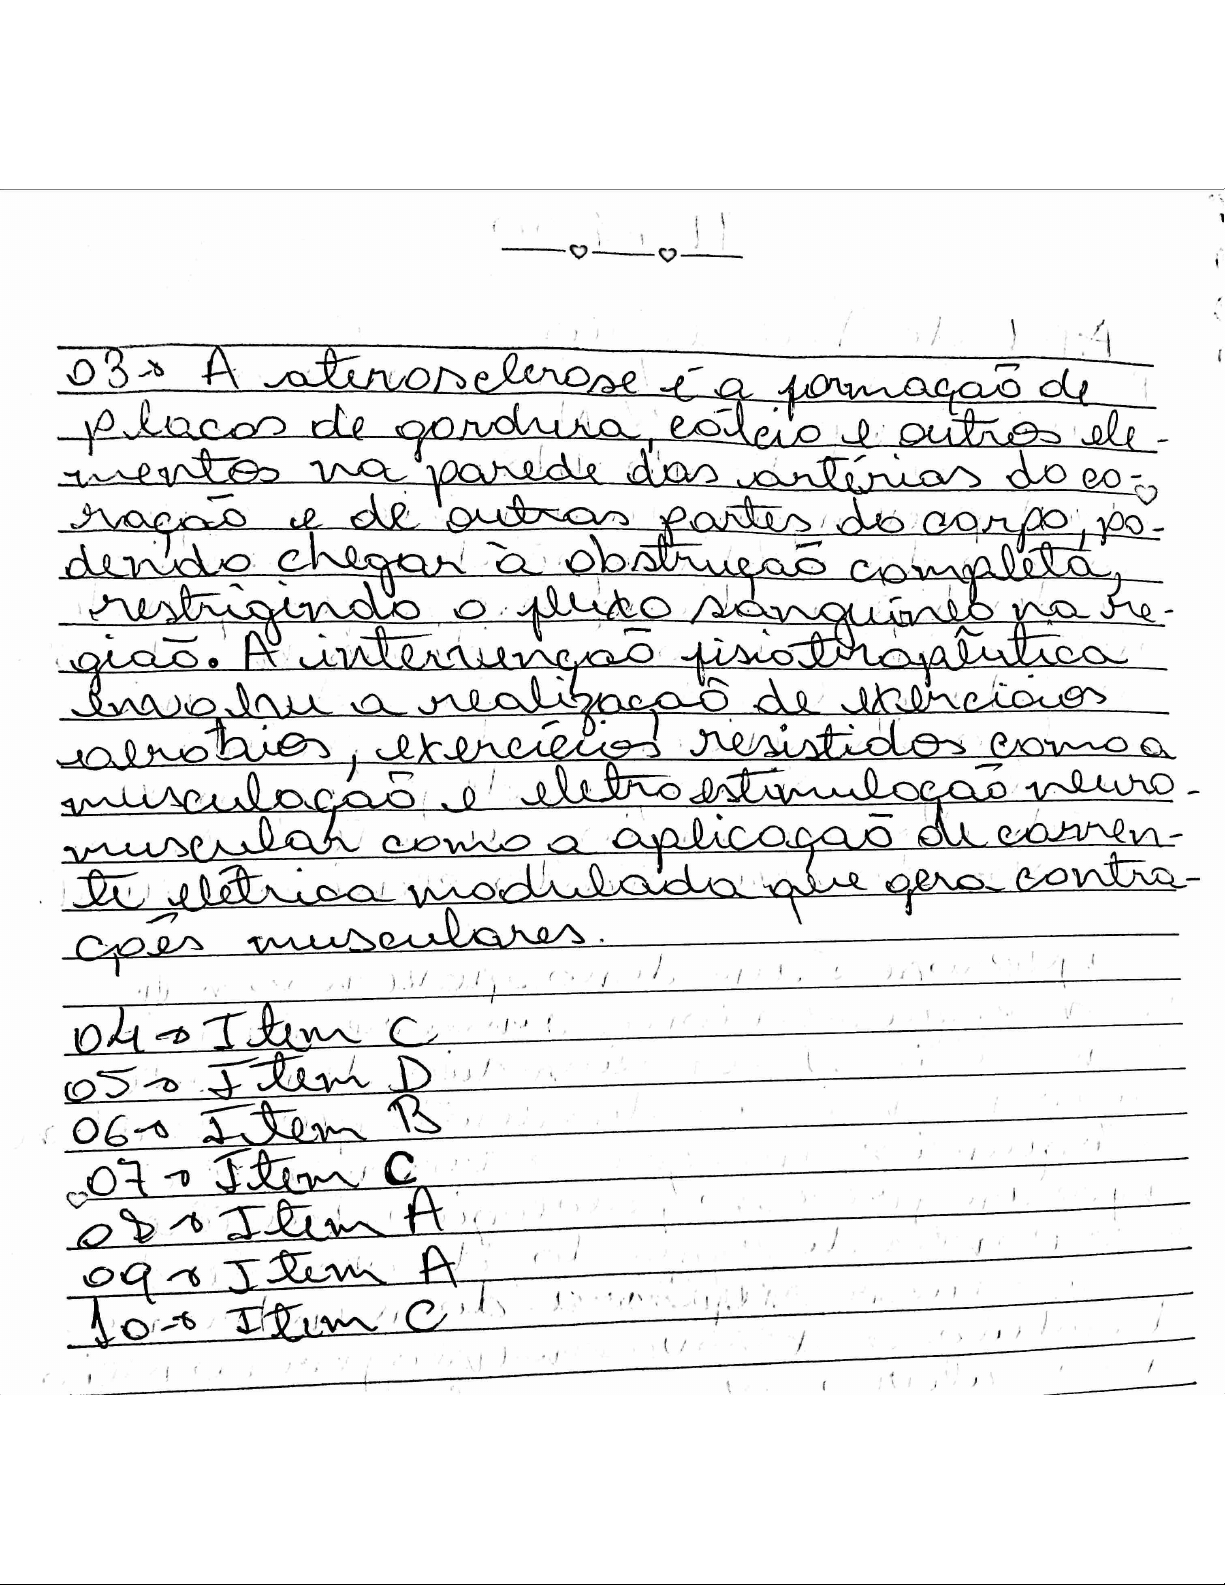 03→ A aterosclerose é a formação de
placas de gordura, cálcio e outros ele-
mentos na parede das artérias do co-
ração e de outras partes do corpo, po-
dendo chegar à obstrução completa,
restrigindo o fluxo sanguíneo na re-
gião. A intervenção fisioterapêutica
envolve a realização de exercícios
aerobios, exercícios resistidos como a
musculação e eletroestimulação neuro-
muscular como a aplicação de corren-
te elétrica modulada que gera contra-
ções musculares.
04→ Item C
05→ Item D
06→ Item B
07→ Item C
08→ Item A
09→ Item A
10→ Item C